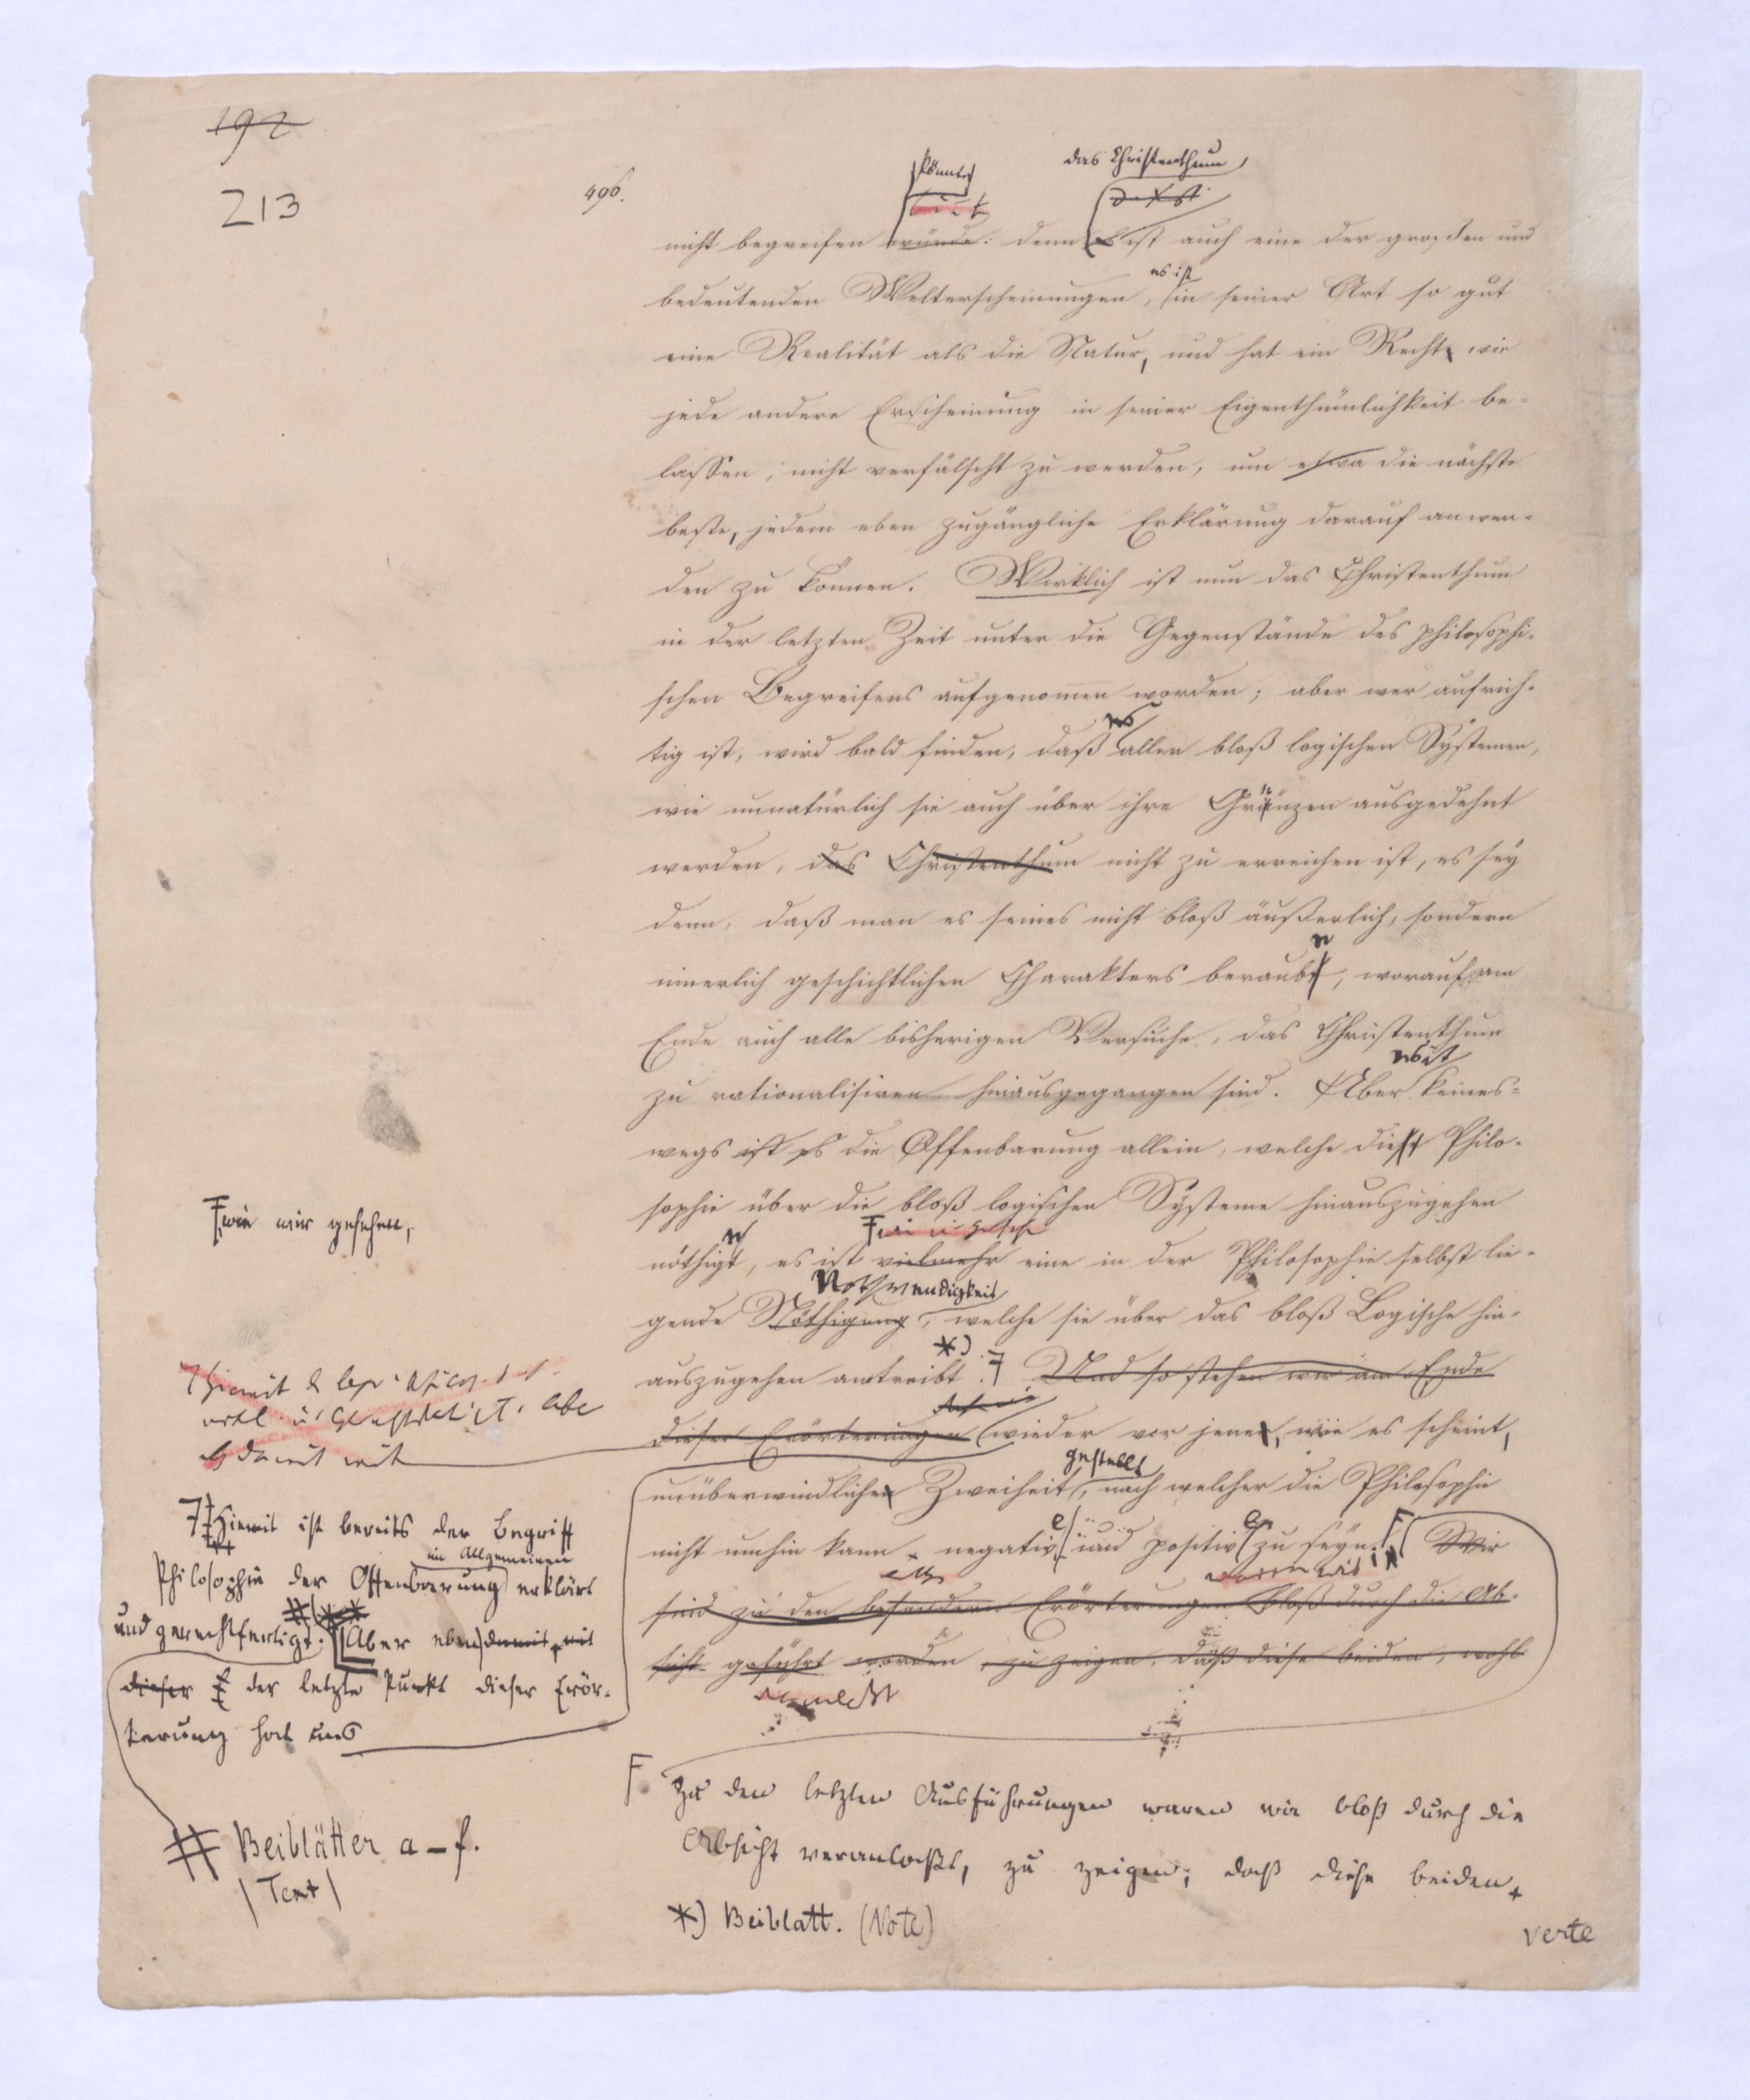 192
213
496.
könnte
das Christenthum
nicht begreifen würde: denn es ist auch eine der großen und
es ist
bedeutenden Welterscheinungen, in seiner Art so gut
eine Realität als die Natur, und hat ein Recht wie
jede andere Erscheinung in seiner Eigenthümlichkeit be-
lassen, nicht verfälscht zu werden, um etwa die nächste
beste, jedem eben zugängliche Erklärung darauf anwen-
den zu können. Wirklich ist nun das Christenthum
in der letzten Zeit unter die Gegenstände des philosophi-
schen Begreifens aufgenomen worden; aber wer aufrich-
es
tig ist, wird bald finden, daß allen bloß logischen Systemen,
wie unnatürlich sie auch über ihre Gränzen ausgedehnt
werden, das Christenthum nicht zu erreichen ist, es sey
denn, daß man es seines nicht bloß äußerlich, sondern
innerlich geschichtlichen Charakters beraubt, worauf am
Ende auch alle bisherigen Versuche, das Christenthum
es ist
zu rationalisiren hinausgegangen sind. Aber keines-
wegs ist es die Offenbarung allein, welche die Philo-
sophie über die bloß logischen Systeme hinauszugehen
F wie wir gesehen,
nöthigt, es ist vielmehr eine in der Philosophie selbst lie-
Nothwendigkeit
gende Nöthigung, welche sie über das bloß Logische hin-
*)
auszugehen antreibt. Und so stehen wir am Ende
dieser Erörterungen wieder vor jener, wie es scheint,
gestellt
unüberwindlichen Zweiheit, nach welcher die Philosophie
nicht umhin kann negativ und positiv zu seyn. F Wir
sind zu den besondern Erörterungen bloß durch die Ab-
sicht geführt worden, zu zeigen, daß diese beiden, wohl
Hiemit ist bereits der Begriff
im Allgemeinen
Philosophie der Offenbarung erklärt
und gerechtfertigt. Aber eben damit mit
dieser der letzte Punkt dieser Erör-
terung hat uns
# Beiblätter a-f.
(Text)
F. Zu den letzten Ausführungen waren wir bloß durch die
Absicht veranlaßt, zu zeigen, daß diese beiden
*) Beiblatt. (Note)
verte